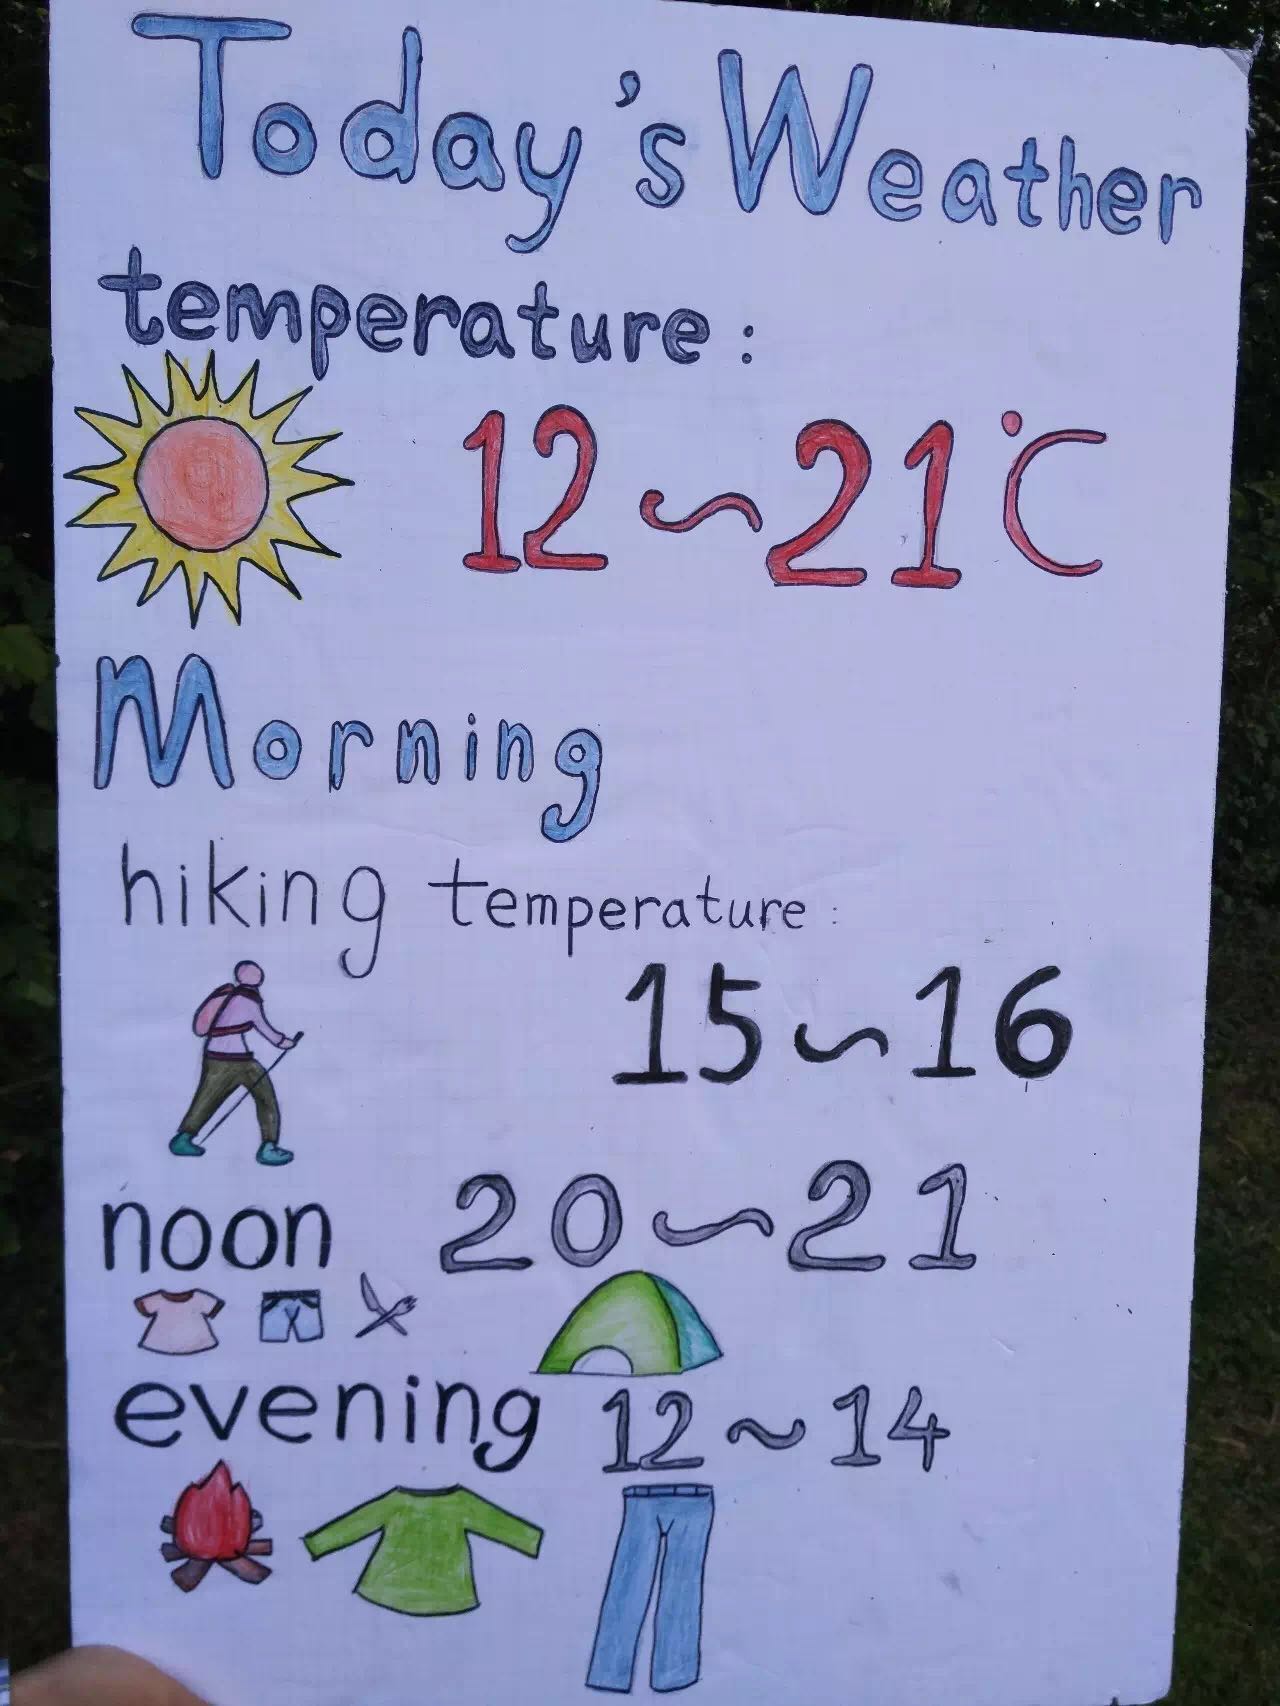 Today's Weather
temperature:
12~21°C
Morning
hiking temperature:
15~16
noon 20~21
evening 12~14